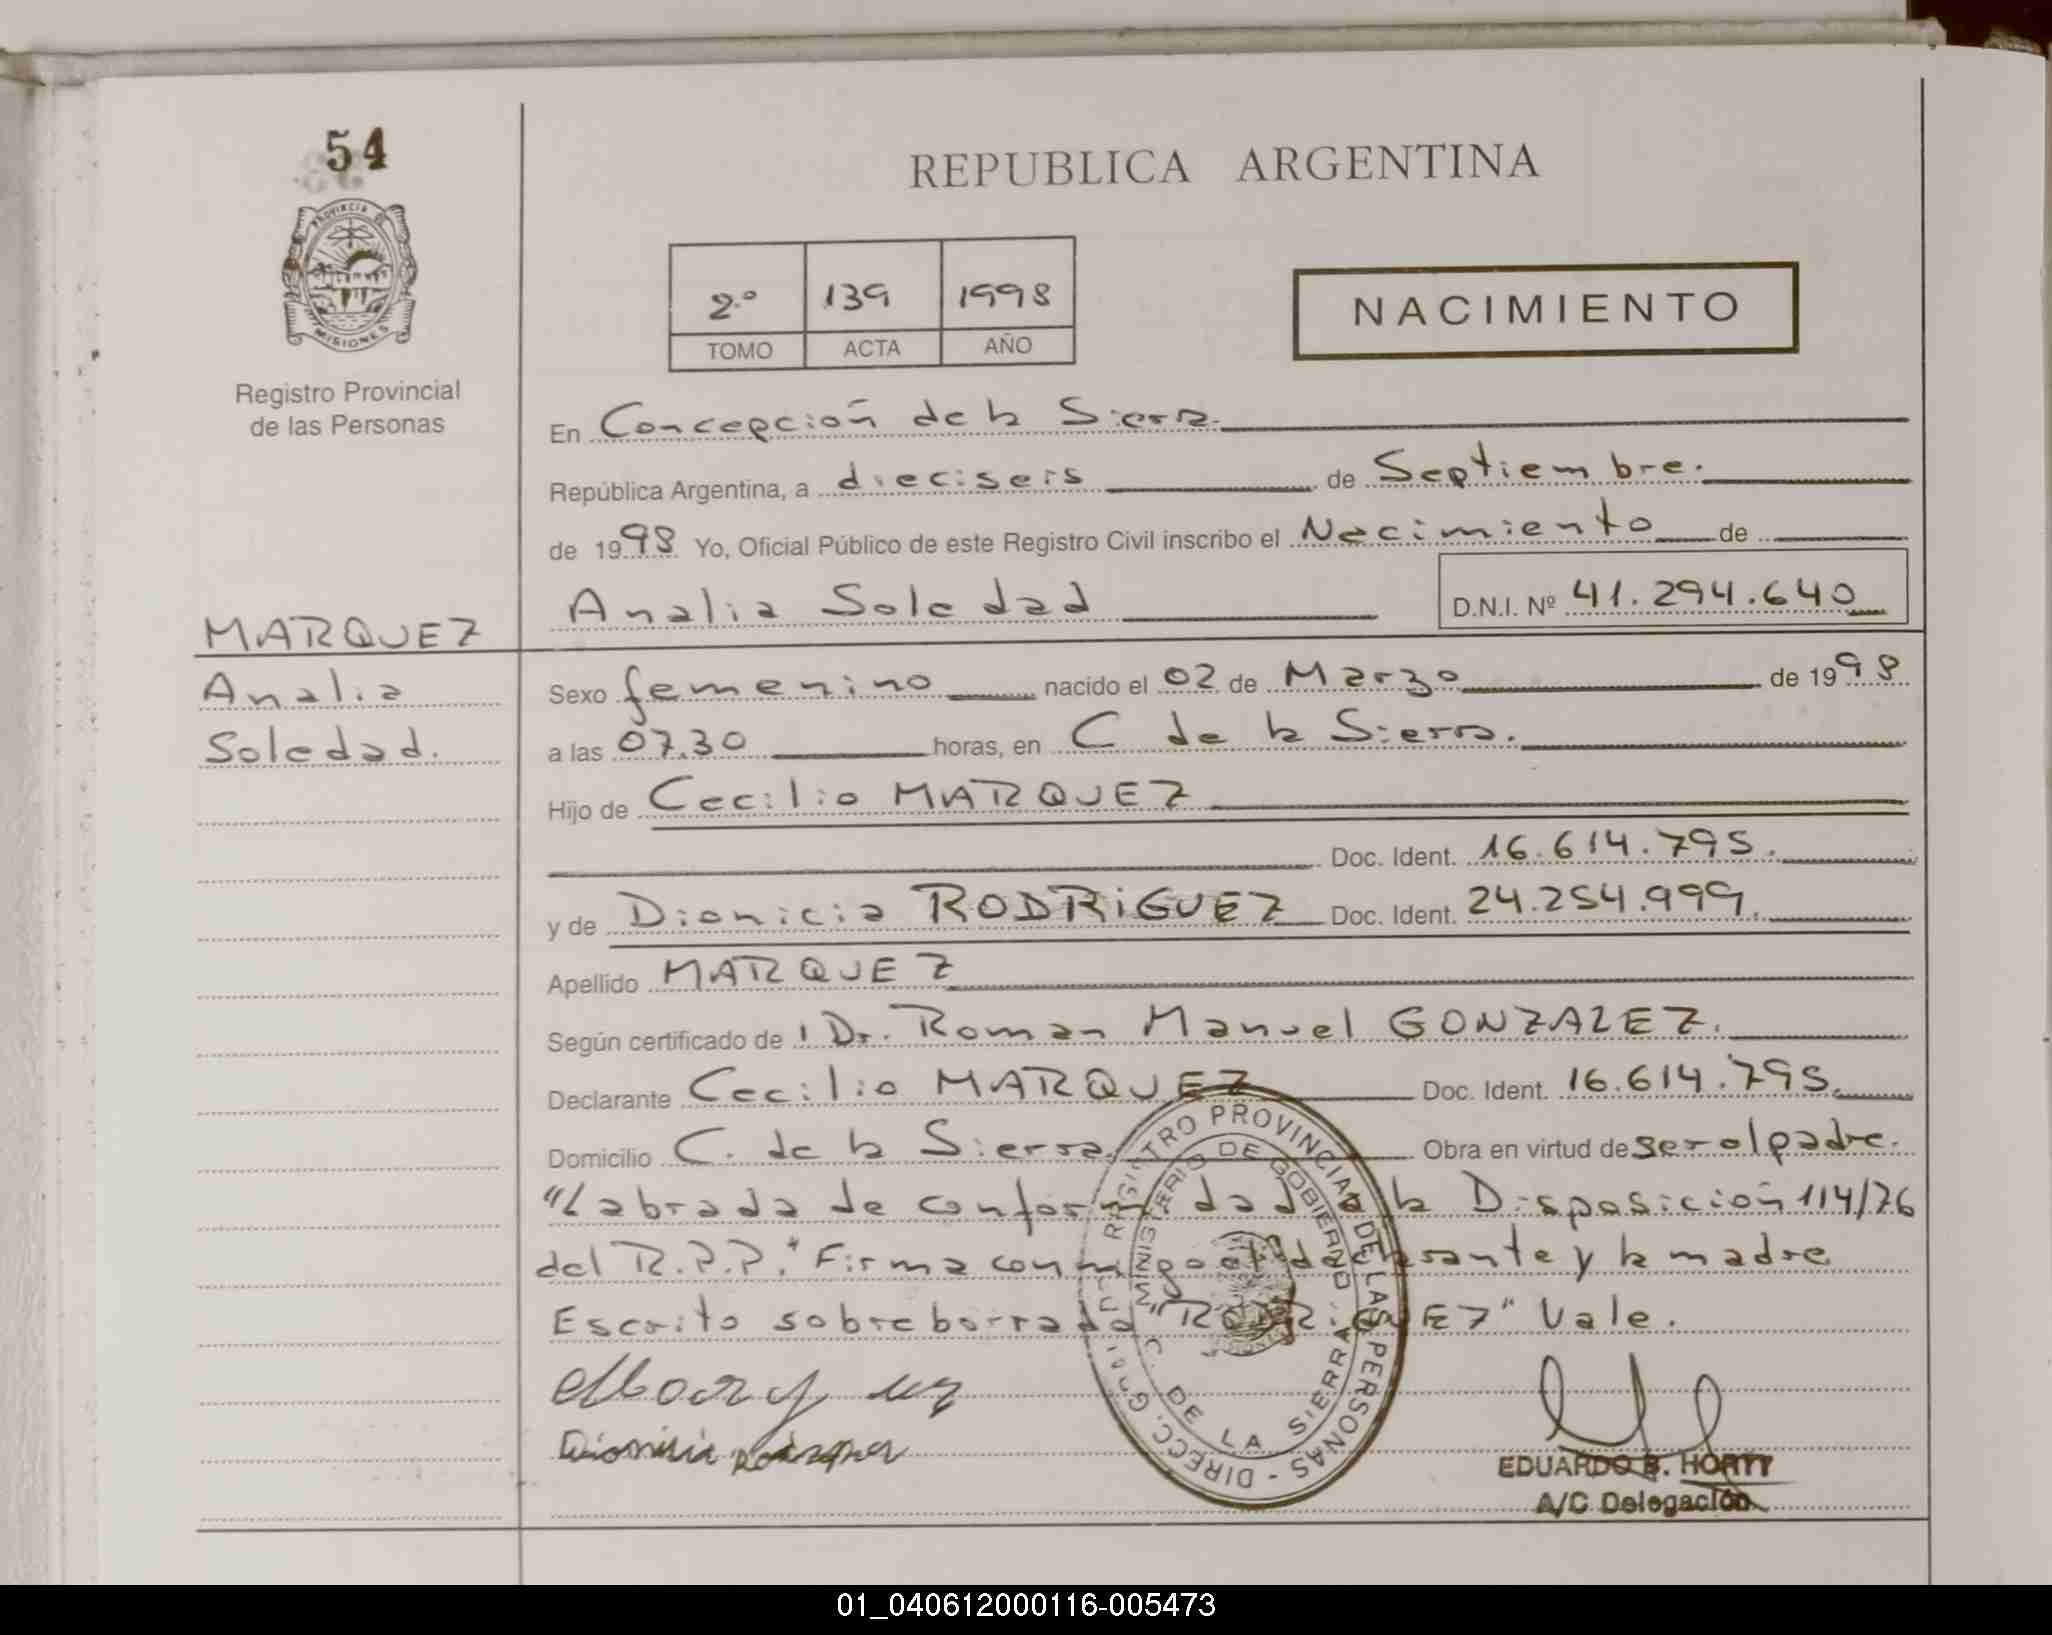 54
REPUBLICA ARGENTINA
PROVINCIA DE
MISIONES
2º 139 1998
TOMO ACTA AÑO
NACIMIENTO
Registro Provincial
de las Personas
En Concepción de la Sierra.
República Argentina, a dieciseis de Septiembre.
de 1998 Yo, Oficial Público de este Registro Civil inscribo el Nacimiento de
Analia Soledad D.N.I. Nº 41.294.640
MARQUEZ
Analia
Soledad.
Sexo femenino nacido el 02 de Marzo de 1998
a las 07.30 horas, en C de la Sierra.
Hijo de Cecilio MARQUEZ
Doc. Ident. 16.614.795.
y de Dionicia RODRiGUEZ Doc. Ident. 24.254.999.
Apellido MARQUEZ
Según certificado de Dr. Roman Manuel GONZALEZ.
Declarante Cecilio MARQUEZ Doc. Ident. 16.614.795.
Domicilio C. de la Sierra. Obra en virtud de ser el padre.
"Labrada de conformidad a la Disposición 114/76
del R.P.P." Firma conmigo el declarante y la madre
Escrito sobreborrado "RODRiGUEZ" Vale.
REGISTRO PROVINCIAL DE LAS PERSONAS - DIRECC. GRAL.
MINISTERIO DE GOBIERNO
C. DE LA SIERRA
Dionicia
EDUARDO B. HORTT
A/C Delegación
01_040612000116-005473